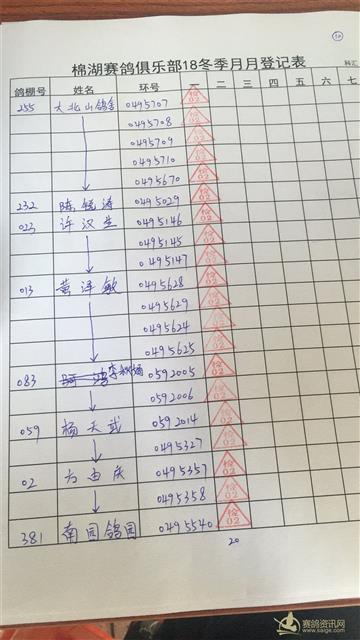 20
棉湖赛鸽俱乐部18冬季月月登记表
科汇
鸽棚号 姓名 环号 一 二 三 四 五 六 七
255 大北山鸽舍 0495707 检02
0495708 检02
0495709 检02
0495710 检02
0495670 检02
232 陈锐涛 0495029 检02
023 许汉生 0495146 检02
0495145 检02
0495147 检02
013 黄泽敏 0495628 检02
0495629 检02
0495624 检02
0495625 检02
083 0592005 检02
0592006 检02
059 杨天武 0592014 检02
0495327 检02
02 方由庆 0495357 检02
0495358 检02
381 南园鸽园 0495540 检02
20
赛鸽资讯网
www.saige.com